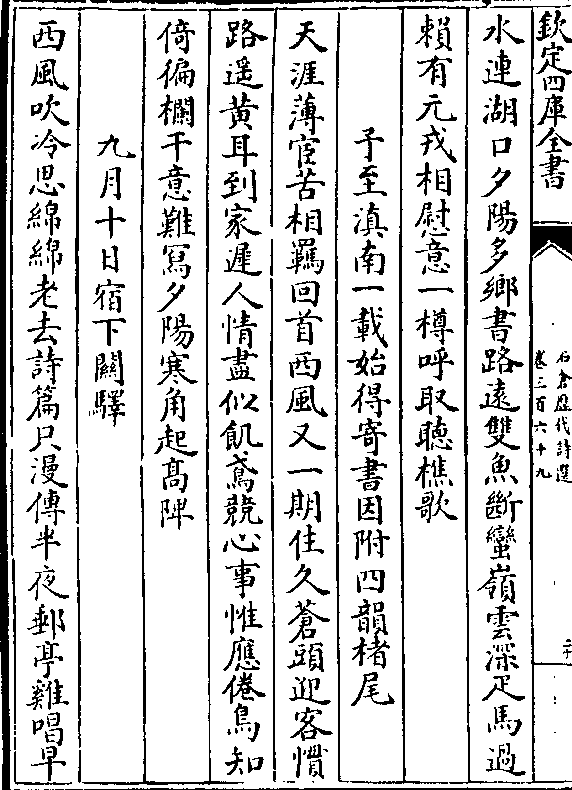 欽定四庫全書
石倉歷代詩選
卷三百六十九
二十
水連湖口夕陽多鄉書路遠雙魚斷蠻嶺雲深疋馬過
賴有元戎相慰意一樽呼取聽樵歌
予至滇南一載始得寄書因附四韻楮尾
天涯薄宦苦相羈回首西風又一期住久蒼頭迎客慣
路遥黃耳到家遲人情盡似飢鳶競心事惟應倦鳥知
倚徧欄干意難寫夕陽寒角起高陴
九月十日宿下關驛
西風吹冷思綿綿老去詩篇只漫傳半夜郵亭雞唱早